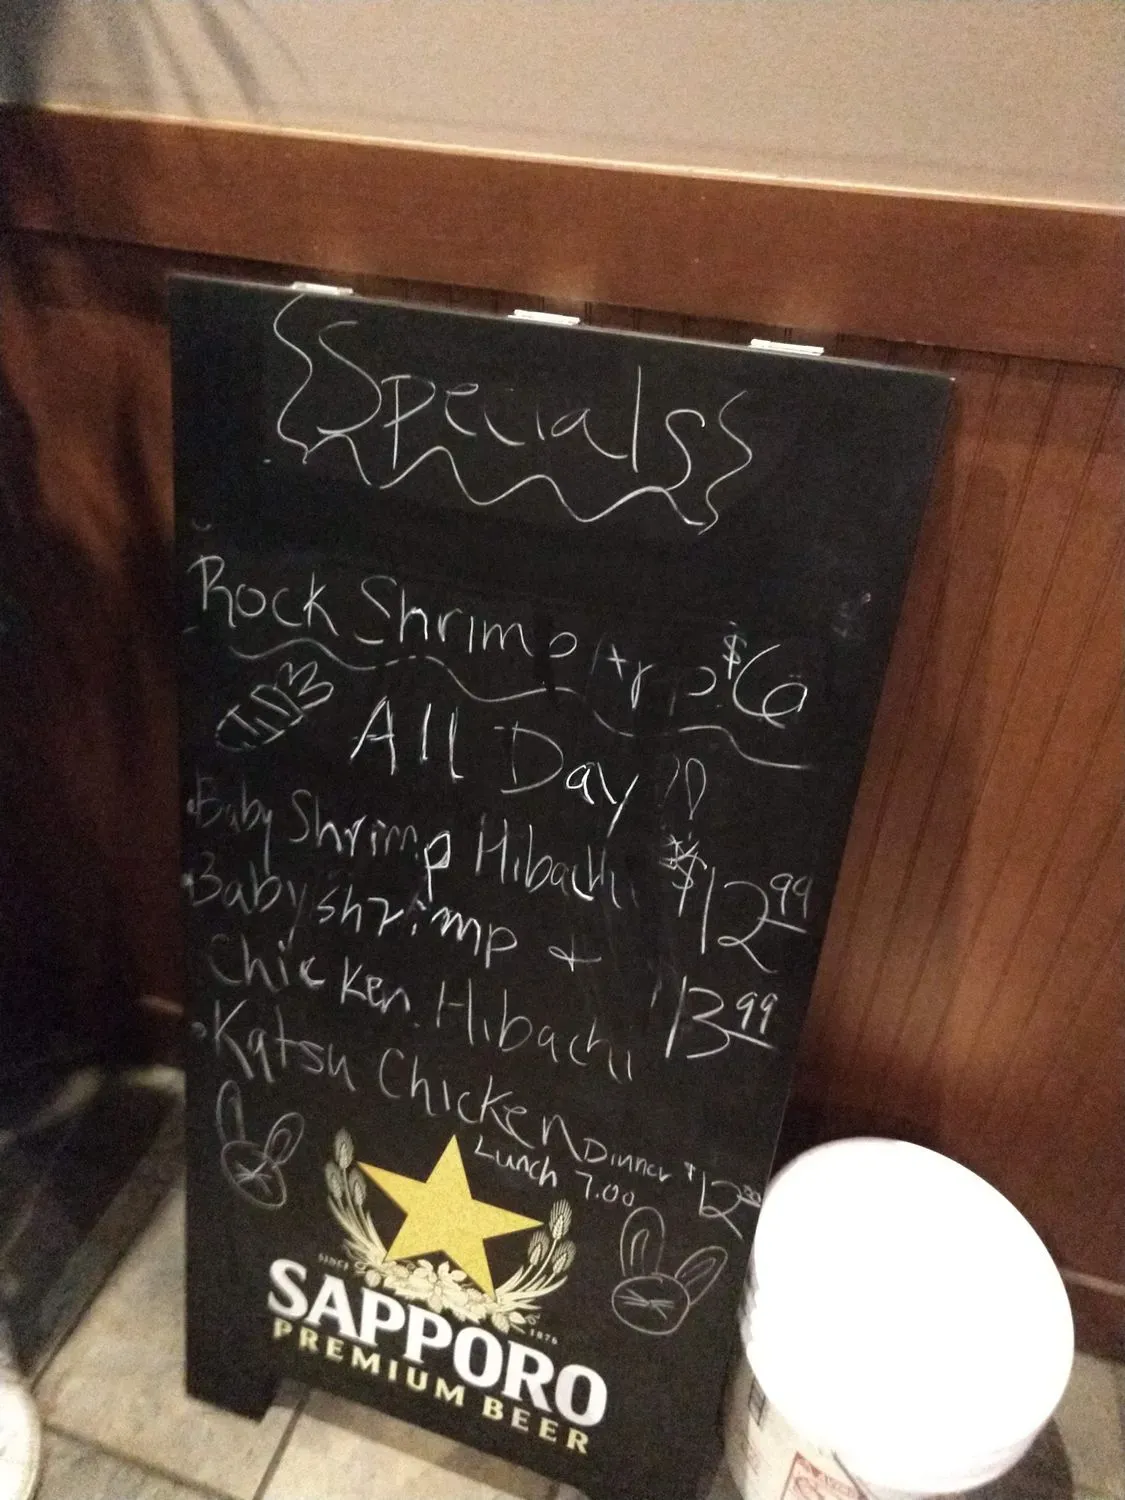 Specials
Rock Shrimp App $6
All Day
Baby Shrimp Hibachi $12.99
Baby shrimp +
Chicken Hibachi 13.99
Katsu Chicken Dinner $12
Lunch 7.00
SINCE 1876
SAPPORO
PREMIUM BEER